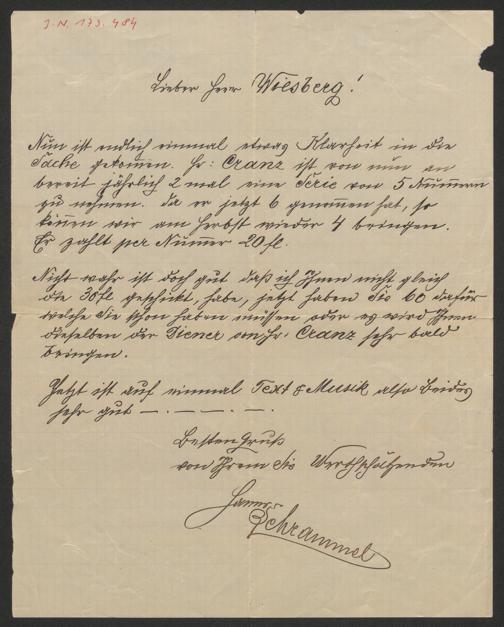 J.N. 173.484
Lieber Herr Wiesberg!
Nun ist endlich einmal etwas Klarheit in die
Sache gekommen. Hr: Cranz ist von nun an
bereit jährlich 2 mal eine Serie von 5 Num̅ern
zu nehmen. da er jetzt 6 genom̅en hat, so
kön̅en wir am Herbst wieder 4 bringen.
Er zahlt per Num̅er 20 fl.
Nicht wahr ist doch gut daß ich Ihnen nicht gleich
die 30 fl geschickt, habe, jetzt haben Sie 60 dafür
welche Sie schon haben müssen oder es wird Ihnen
dieselben der Diener von Hr: Cranz sehr bald
bringen.
Jetzt ist auf einmal Text & Musik also beides
sehr gut — . — — . —.
Besten Gruß
von Ihrem Sie Werthschätzenden
Hanns
Schrammel